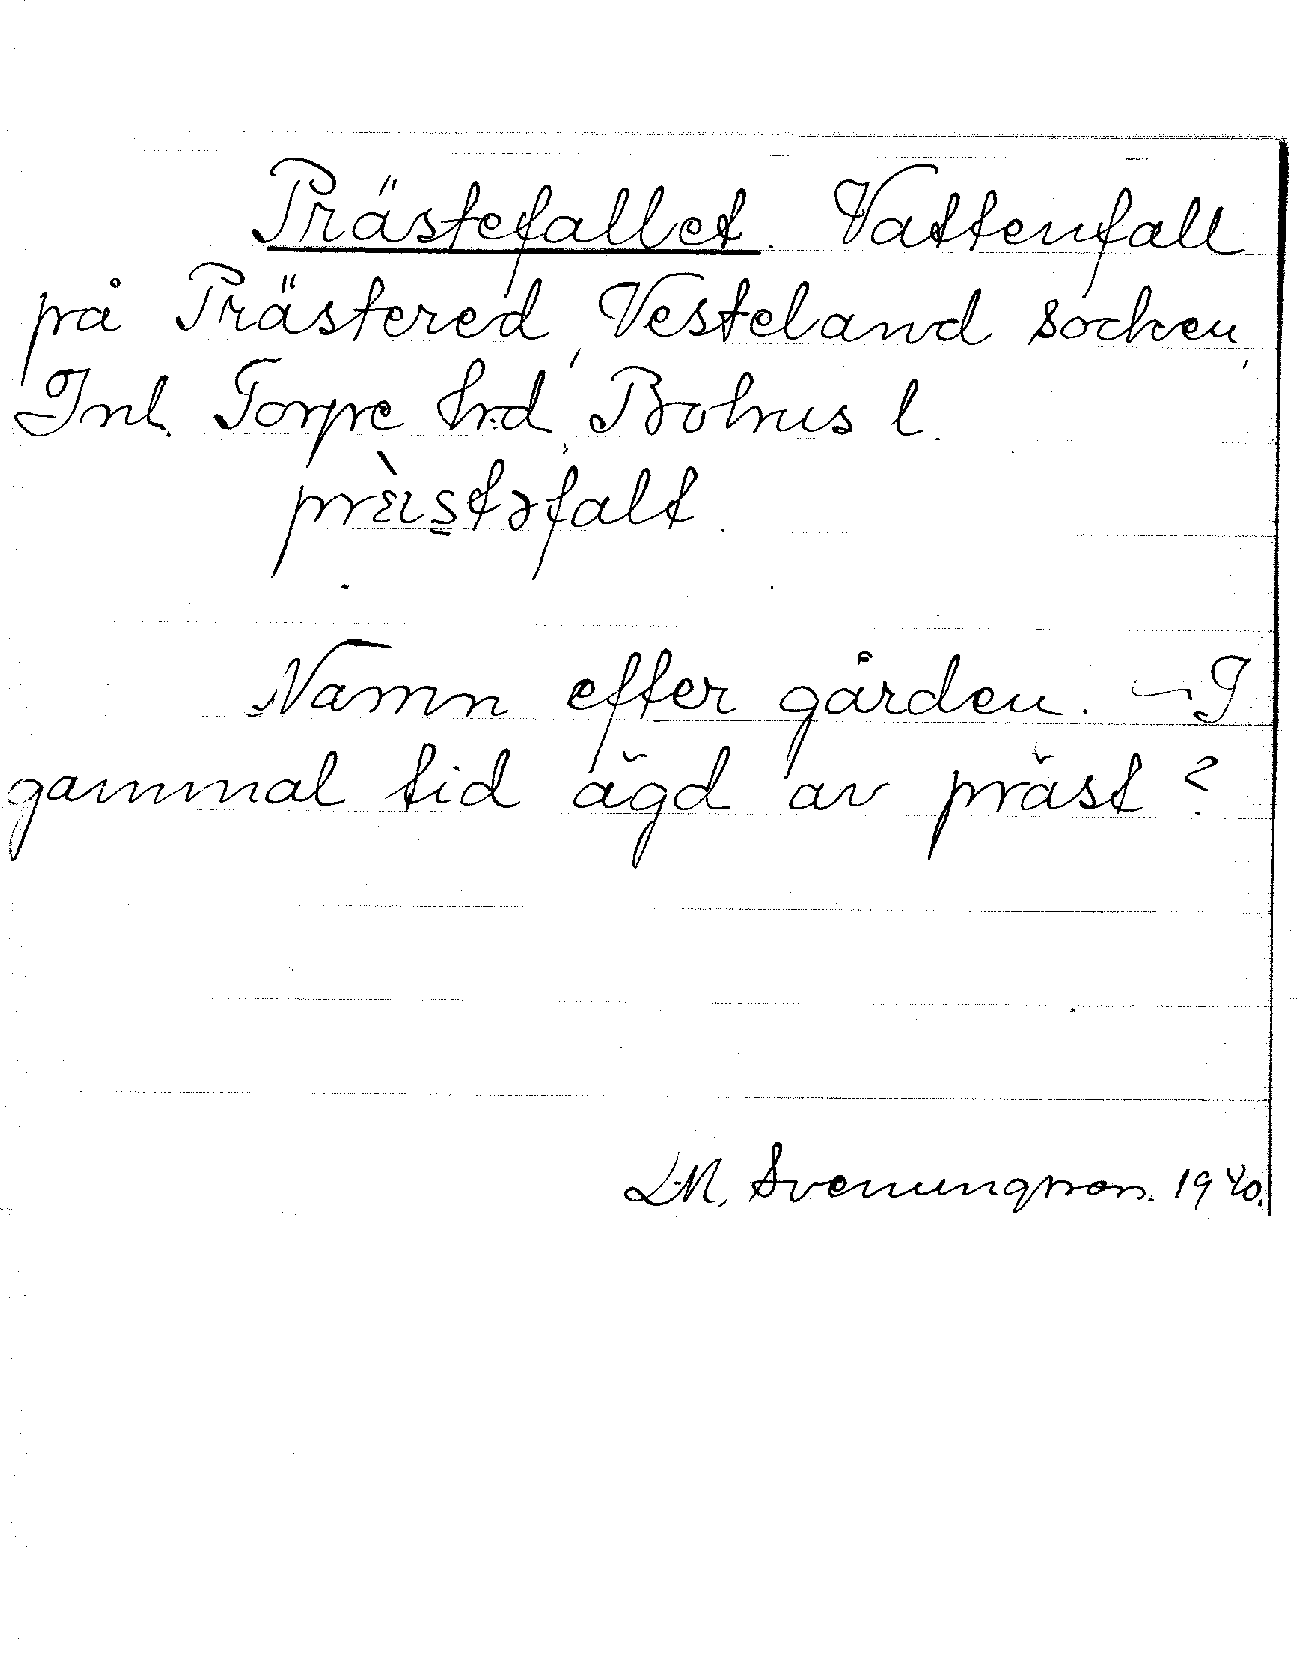 Prästefallet. Vattenfall
på Prästered, Vesteland socken,
Inl. Torpe hrd, Bohus l.
prɛ̀ıs̠təfalt.
Namn efter gården. – I
gammal tid ägd av präst?
L.M. Svenungsson. 1940.